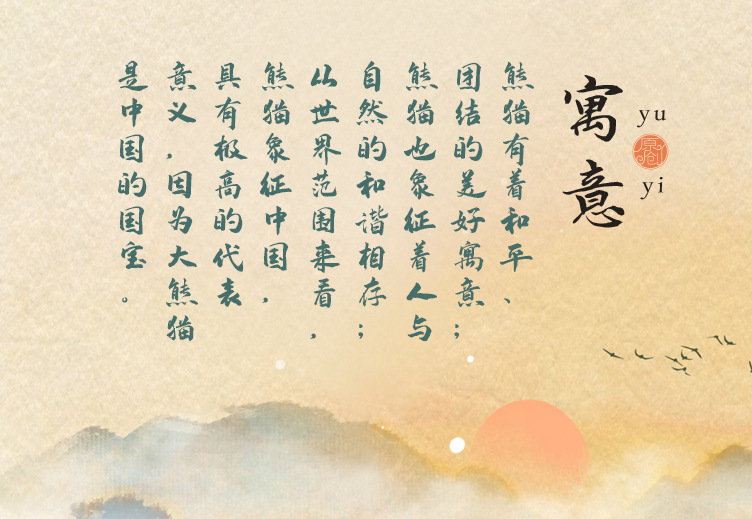 寓意
yu
原创
yi
熊猫有着和平、
团结的美好寓意；
熊猫也象征着人与
自然的和谐相存；
从世界范围来看，
熊猫象征中国，
具有极高的代表
意义，因为大熊猫
是中国的国宝。